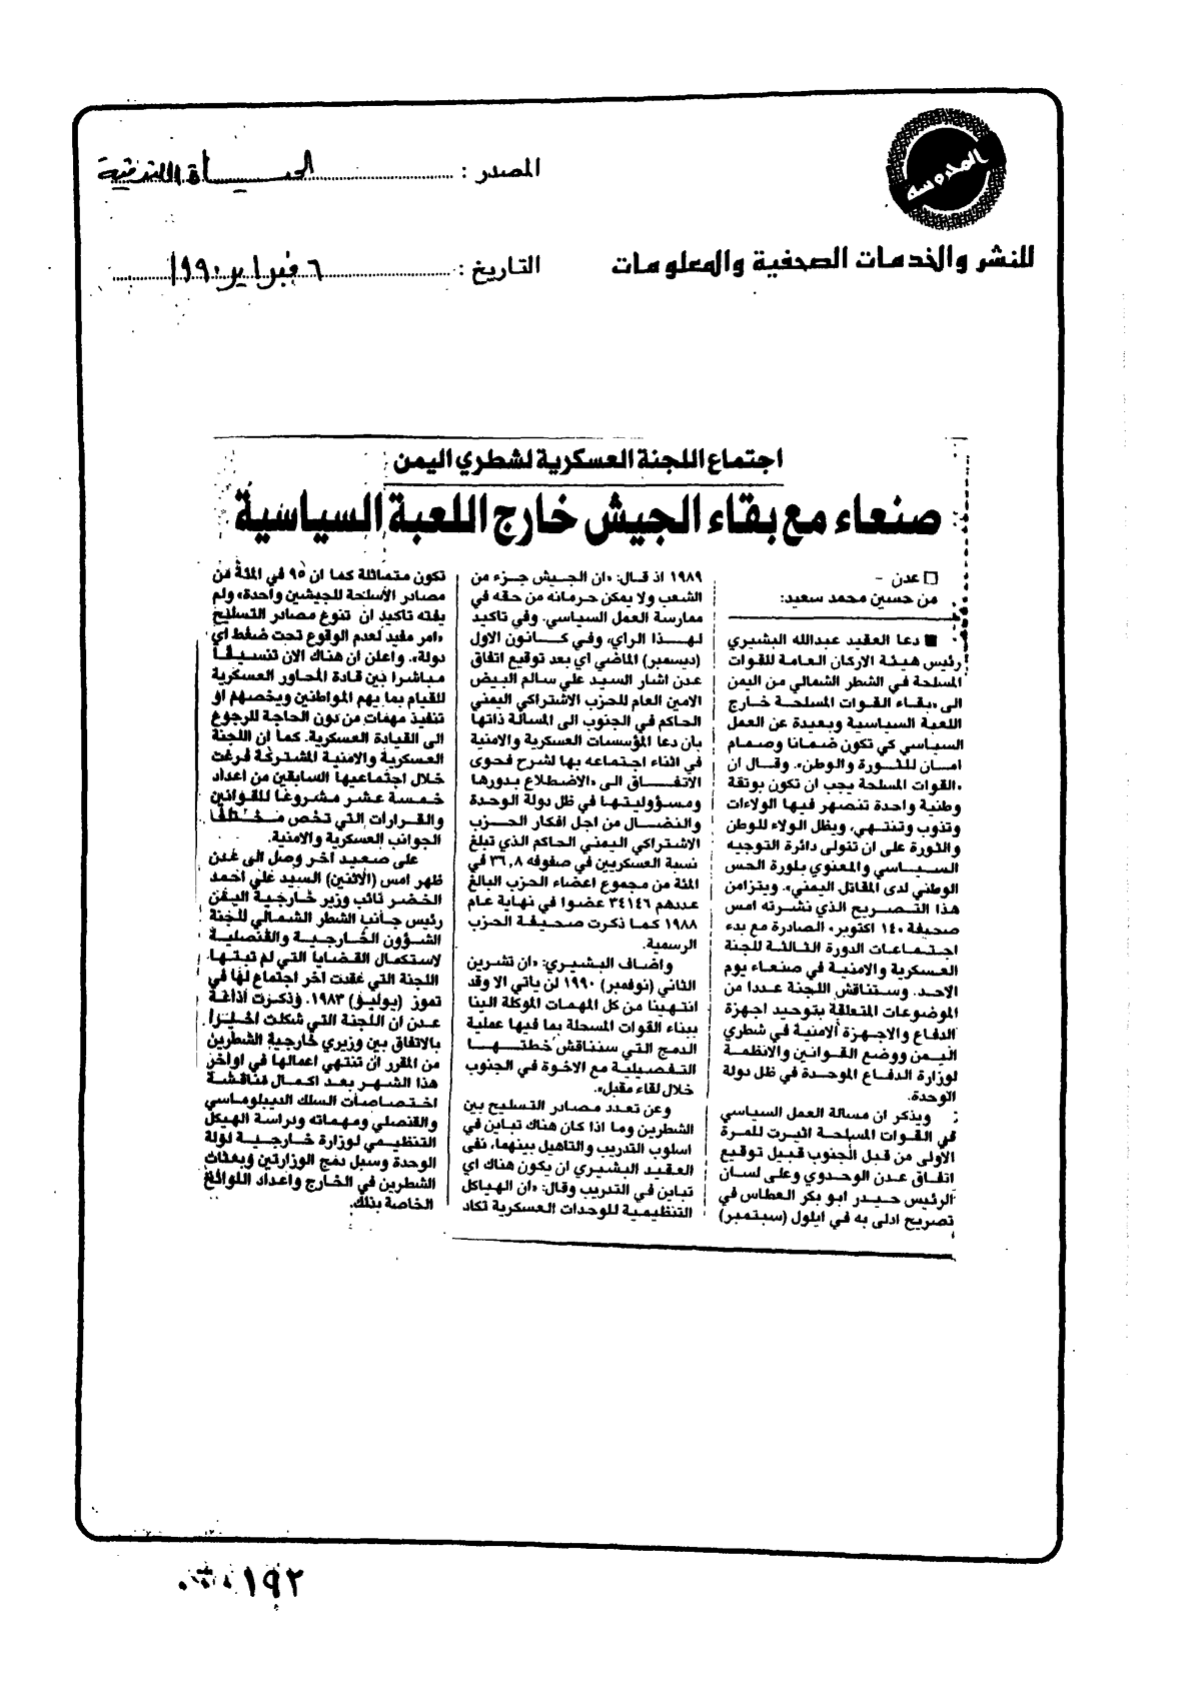 المحروسة
للنشر والخدمات الصحفية والمعلومات
المصدر : الحياة اللندنية
التاريخ : ٦ فبراير ١٩٩٠
اجتماع اللجنة العسكرية لشطري اليمن
صنعاء مع بقاء الجيش خارج اللعبة السياسية
□ عدن -
من حسين محمد سعيد:
■ دعا العقيد عبدالله البشيري
رئيس هيئة الاركان العامة للقوات
المسلحة في الشطر الشمالي من اليمن
الى «بقاء القوات المسلحة خارج
اللعبة السياسية وبعيدة عن العمل
السياسي كي تكون ضمانا وصمام
امان للثورة والوطن». وقال ان
«القوات المسلحة يجب ان تكون بوتقة
وطنية واحدة تنصهر فيها الولاءات
وتذوب وتنتهي، ويظل الولاء للوطن
والثورة على ان تتولى دائرة التوجيه
السياسي والمعنوي بلورة الحس
الوطني لدى المقاتل اليمني». ويتزامن
هذا التصريح الذي نشرته امس
صحيفة «١٤ اكتوبر» الصادرة مع بدء
اجتماعات الدورة الثالثة للجنة
العسكرية والامنية في صنعاء يوم
الاحد. وستناقش اللجنة عددا من
الموضوعات المتعلقة بتوحيد اجهزة
الدفاع والاجهزة الامنية في شطري
اليمن ووضع القوانين والانظمة
لوزارة الدفاع الموحدة في ظل دولة
الوحدة.
ويذكر ان مسالة العمل السياسي
في القوات المسلحة اثيرت للمرة
الاولى من قبل الجنوب قبيل توقيع
اتفاق عدن الوحدوي وعلى لسان
الرئيس حيدر ابو بكر العطاس في
تصريح ادلى به في ايلول (سبتمبر)
١٩٨٩ اذ قال: «ان الجيش جزء من
الشعب ولا يمكن حرمانه من حقه في
ممارسة العمل السياسي. وفي تاكيد
لهذا الراي، وفي كانون الاول
(ديسمبر) الماضي اي بعد توقيع اتفاق
عدن اشار السيد علي سالم البيض
الامين العام للحزب الاشتراكي اليمني
الحاكم في الجنوب الى المسالة ذاتها
بان دعا المؤسسات العسكرية والامنية
في اثناء اجتماعه بها لشرح فحوى
الاتفاق الى «الاضطلاع بدورها
ومسؤوليتها في ظل دولة الوحدة
والنضال من اجل افكار الحزب
الاشتراكي اليمني الحاكم الذي تبلغ
نسبة العسكريين في صفوفه ٣٦,٨ في
المئة من مجموع اعضاء الحزب البالغ
عددهم ٣٤١٤٦ عضوا في نهاية عام
١٩٨٨ كما ذكرت صحيفة الحزب
الرسمية.
واضاف البشيري: «ان تشرين
الثاني (نوفمبر) ١٩٩٠ لن ياتي الا وقد
انتهينا من كل المهمات الموكلة الينا
ببناء القوات المسحلة بما فيها عملية
الدمج التي سنناقش خطتها
التفصيلية مع الاخوة في الجنوب
خلال لقاء مقبل».
وعن تعدد مصادر التسليح بين
الشطرين وما اذا كان هناك تباين في
اسلوب التدريب والتاهيل بينهما، نفى
العقيد البشيري ان يكون هناك اي
تباين في التدريب وقال: «ان الهياكل
التنظيمية للوحدات العسكرية تكاد
تكون متماثلة كما ان ٩٥ في المئة من
مصادر الأسلحة للجيشين واحدة، ولم
يفته تاكيد ان تنوع مصادر التسليح
«امر مفيد لعدم الوقوع تحت ضغط اي
دولة». واعلن ان هناك الان تنسيقا
مباشرا بين قادة المحاور العسكرية
للقيام بما يهم المواطنين ويخصهم او
تنفيذ مهمات من دون الحاجة للرجوع
الى القيادة العسكرية. كما ان اللجنة
العسكرية والامنية المشتركة فرغت
خلال اجتماعيها السابقين من اعداد
خمسة عشر مشروعا للقوانين
والقرارات التي تخص مختلف
الجوانب العسكرية والامنية.
على صعيد اخر وصل الى عدن
ظهر امس (الاثنين) السيد علي احمد
الخضر نائب وزير خارجية اليمن
رئيس جانب الشطر الشمالي للجنة
الشؤون الخارجية والقنصلية
لاستكمال القضايا التي لم تبتها
اللجنة التي عقدت اخر اجتماع لها في
تموز (يوليو) ١٩٨٣. وذكرت اذاعة
عدن ان اللجنة التي شكلت اخيرا
بالاتفاق بين وزيري خارجية الشطرين
من المقرر ان تنتهي اعمالها في اواخر
هذا الشهر بعد اكمال مناقشة
اختصاصات السلك الديبلوماسي
والقنصلي ومهماته ودراسة الهيكل
التنظيمي لوزارة خارجية لؤلة
الوحدة وسبل دمج الوزارتين وبعثات
الشطرين في الخارج واعداد اللوائح
الخاصة بذلك.
١٩٢